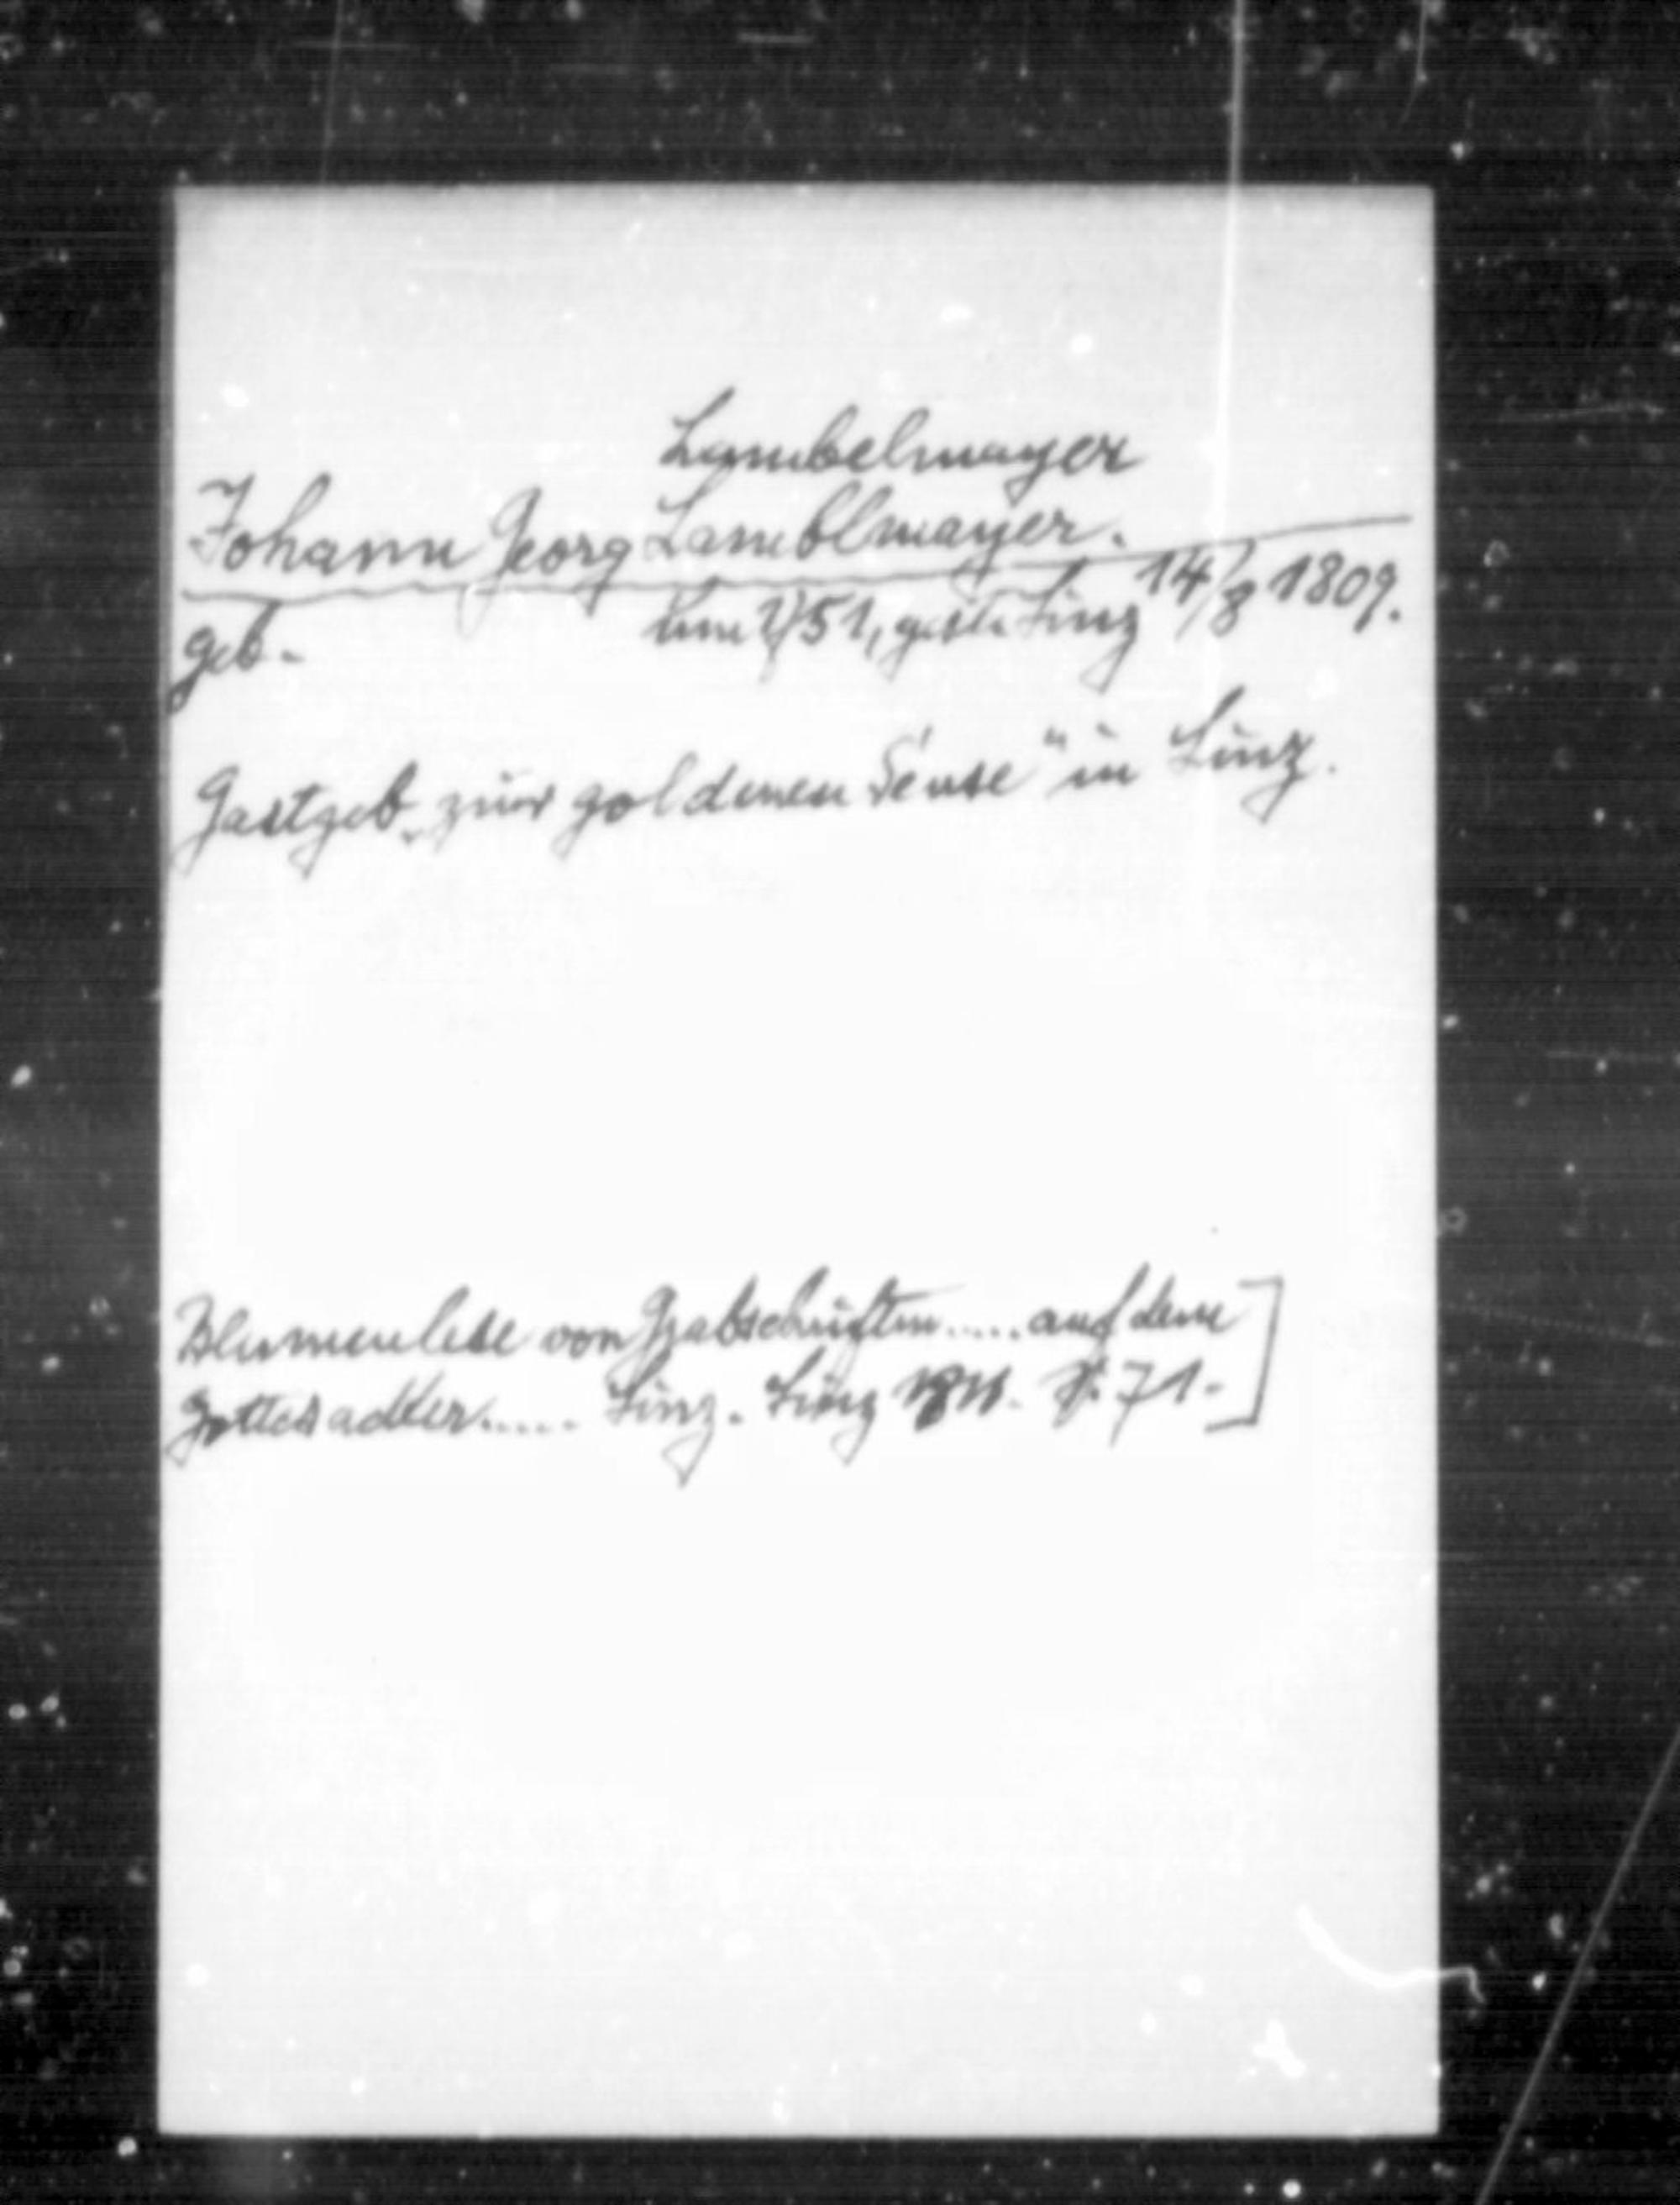 Lambelmayer
Johann Georg Lamblmayer.
geb. um 1751, gest. Linz 14/8 1809.
Gastgeb „zur goldenen Sense" in Linz.
Blumenlese von Grabschriften..... auf dem
Gottesacker..... Linz. Linz 1811. S. 71.]